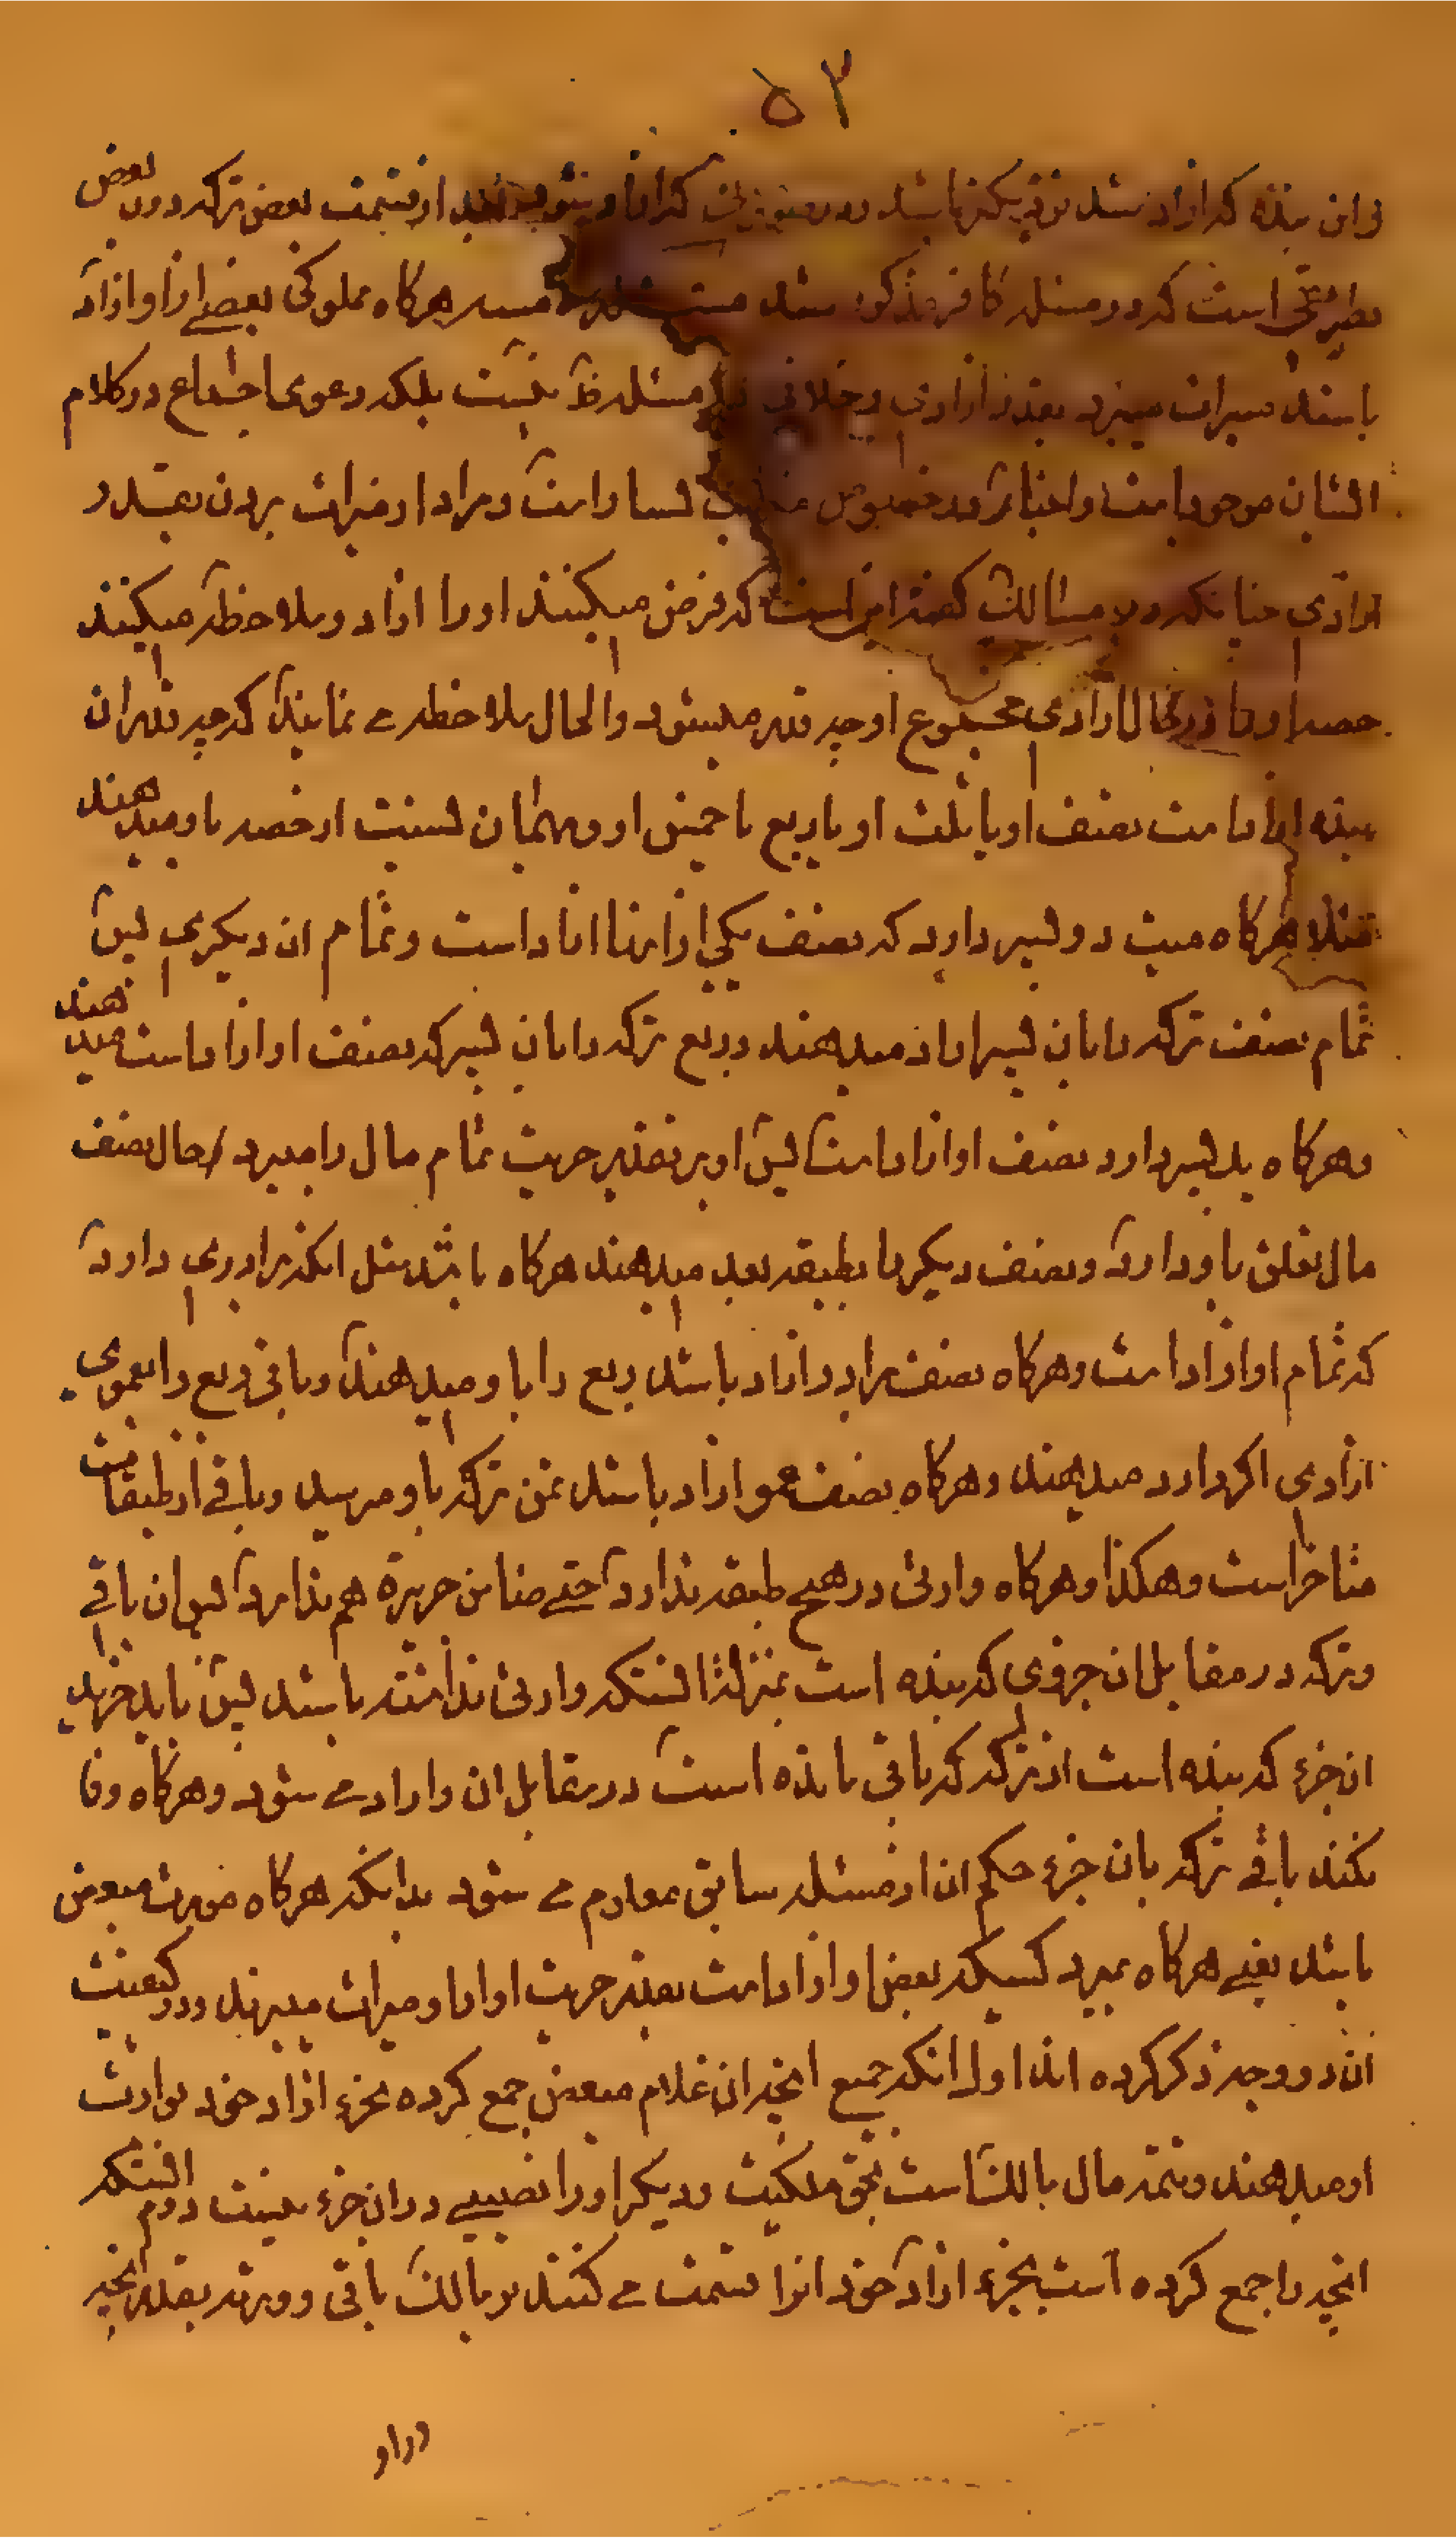 ۵۲
و ان بنده که ازاد شد نزدیکتر باشد از قسمت بعض ترکه دون بعض
است که در مسئله کافر مذکور شد مسئله هرکاه مملوکی بعضی از او ازاد
باشد میراث میبرد بقدر ازادی و خلافی مسئله نیست بلکه دعوی اجماع در کلام
ایشان موجود است و اخبار در خصوص بسیار است و مراد از میراث بردن بقدر
ازادی چنانکه در مسالک کفته این است که فرض میکنند او را ازاد و ملاحظه میکنند
حصه او را در حال ازادی مجموع او چه قدر میشود و الحال ملاحظه می نمایند که چه قدر ان
بنده ازاد است نصف او یا ثلث او یا ربع یا خمس او و بهمان نسبت از حصه باو میدهند
مثلا هرکاه میت دو پسر دارد که نصف یکی از انها ازاد است و تمام ان دیکری پس
تمام نصف ترکه را بان پسر ازاد میدهند و ربع ترکه را بان پسر که نصف او ازاد است میدهند
و هرکاه یک پسر دارد نصف او ازاد است پس او بر تقدیر حریت تمام مال را میبرد الحال نصف
مال تعلق باو دارد و نصف دیکر را بطبقه بعد میدهند هرکاه باشد مثل انکه برادری دارد
که تمام او ازاد است و هرکاه نصف برادر ازاد باشد ربع را باو میدهند و باقی ربع را بعموی
ازادی اکر دارد میدهند و هرکاه نصف عمو ازاد باشد ثمن ترکه باو میرسد و باقی از طبقات
متاخر است و هکذا و هرکاه وارثی در هیچ طبقه ندارد حتی ضامن جریره هم ندارد پس ان باقی
و ترکه در مقابل ان جزوی که بنده است بمنزله انستکه وارثی نداشته باشد پس باید خرید
ان جزء که بنده است از ترکه که باقی مانده است در مقابل ان و ازاد می شود و هرکاه وفا
نکند باقی ترکه بان جزء حکم ان از مسئله سابق معلوم می شود بدانکه هرکاه مورث مبعض
باشد یعنی هرکاه بمیرد کسیکه بعض او ازاد است بقدر حریت او از او میراث میبرند و در کیفیت
ان دو وجه ذکر کرده اند اول انکه جمیع انچه ان غلام مبعض جمع کرده بجزء ازاد خود بوارث
او میدهند و تتمه مال مالک است بحق ملکیت و دیکر او را نصیبی در ان جزء نیست دوم انستکه
انچه را جمع کرده است بجزء ازاد خود انرا قسمت می کنند بر مالک باقی و ورثه بقدر انچه
در او